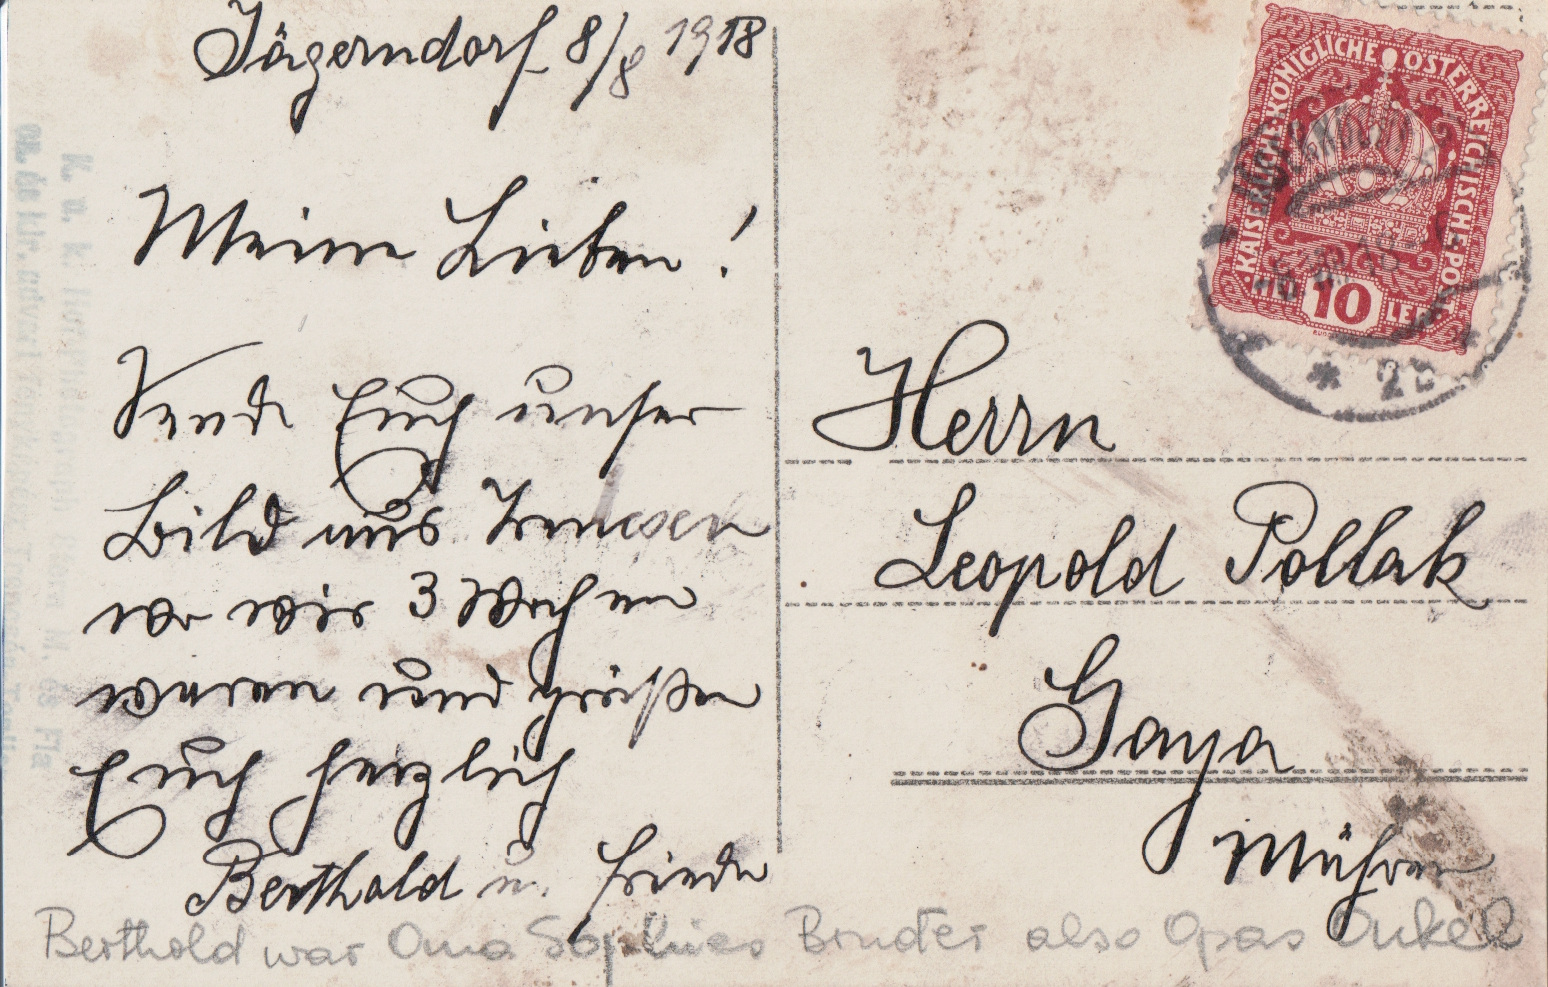 Jägerndorf 8/8 1918
Meine Lieben!
Sende Euch unser
Bild aus
wo wir 3 Wochen
waren und grüßen
Euch herzlich
Berthold u. Friede
KAISERLICHE KÖNIGLICHE ÖSTERREICHISCHE POST
10
Herrn
Leopold Pollak
Gaya
Mähren
Berthold war Oma Sophies Bruder also Opas Onkel
K. u. k.